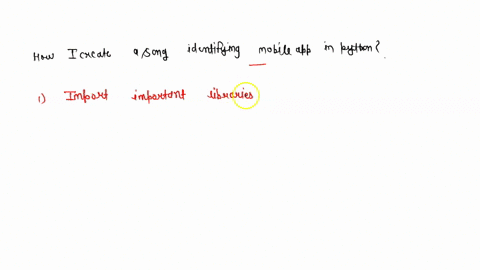 How I create a song identifying mobile app in python?
1) Import important libraries